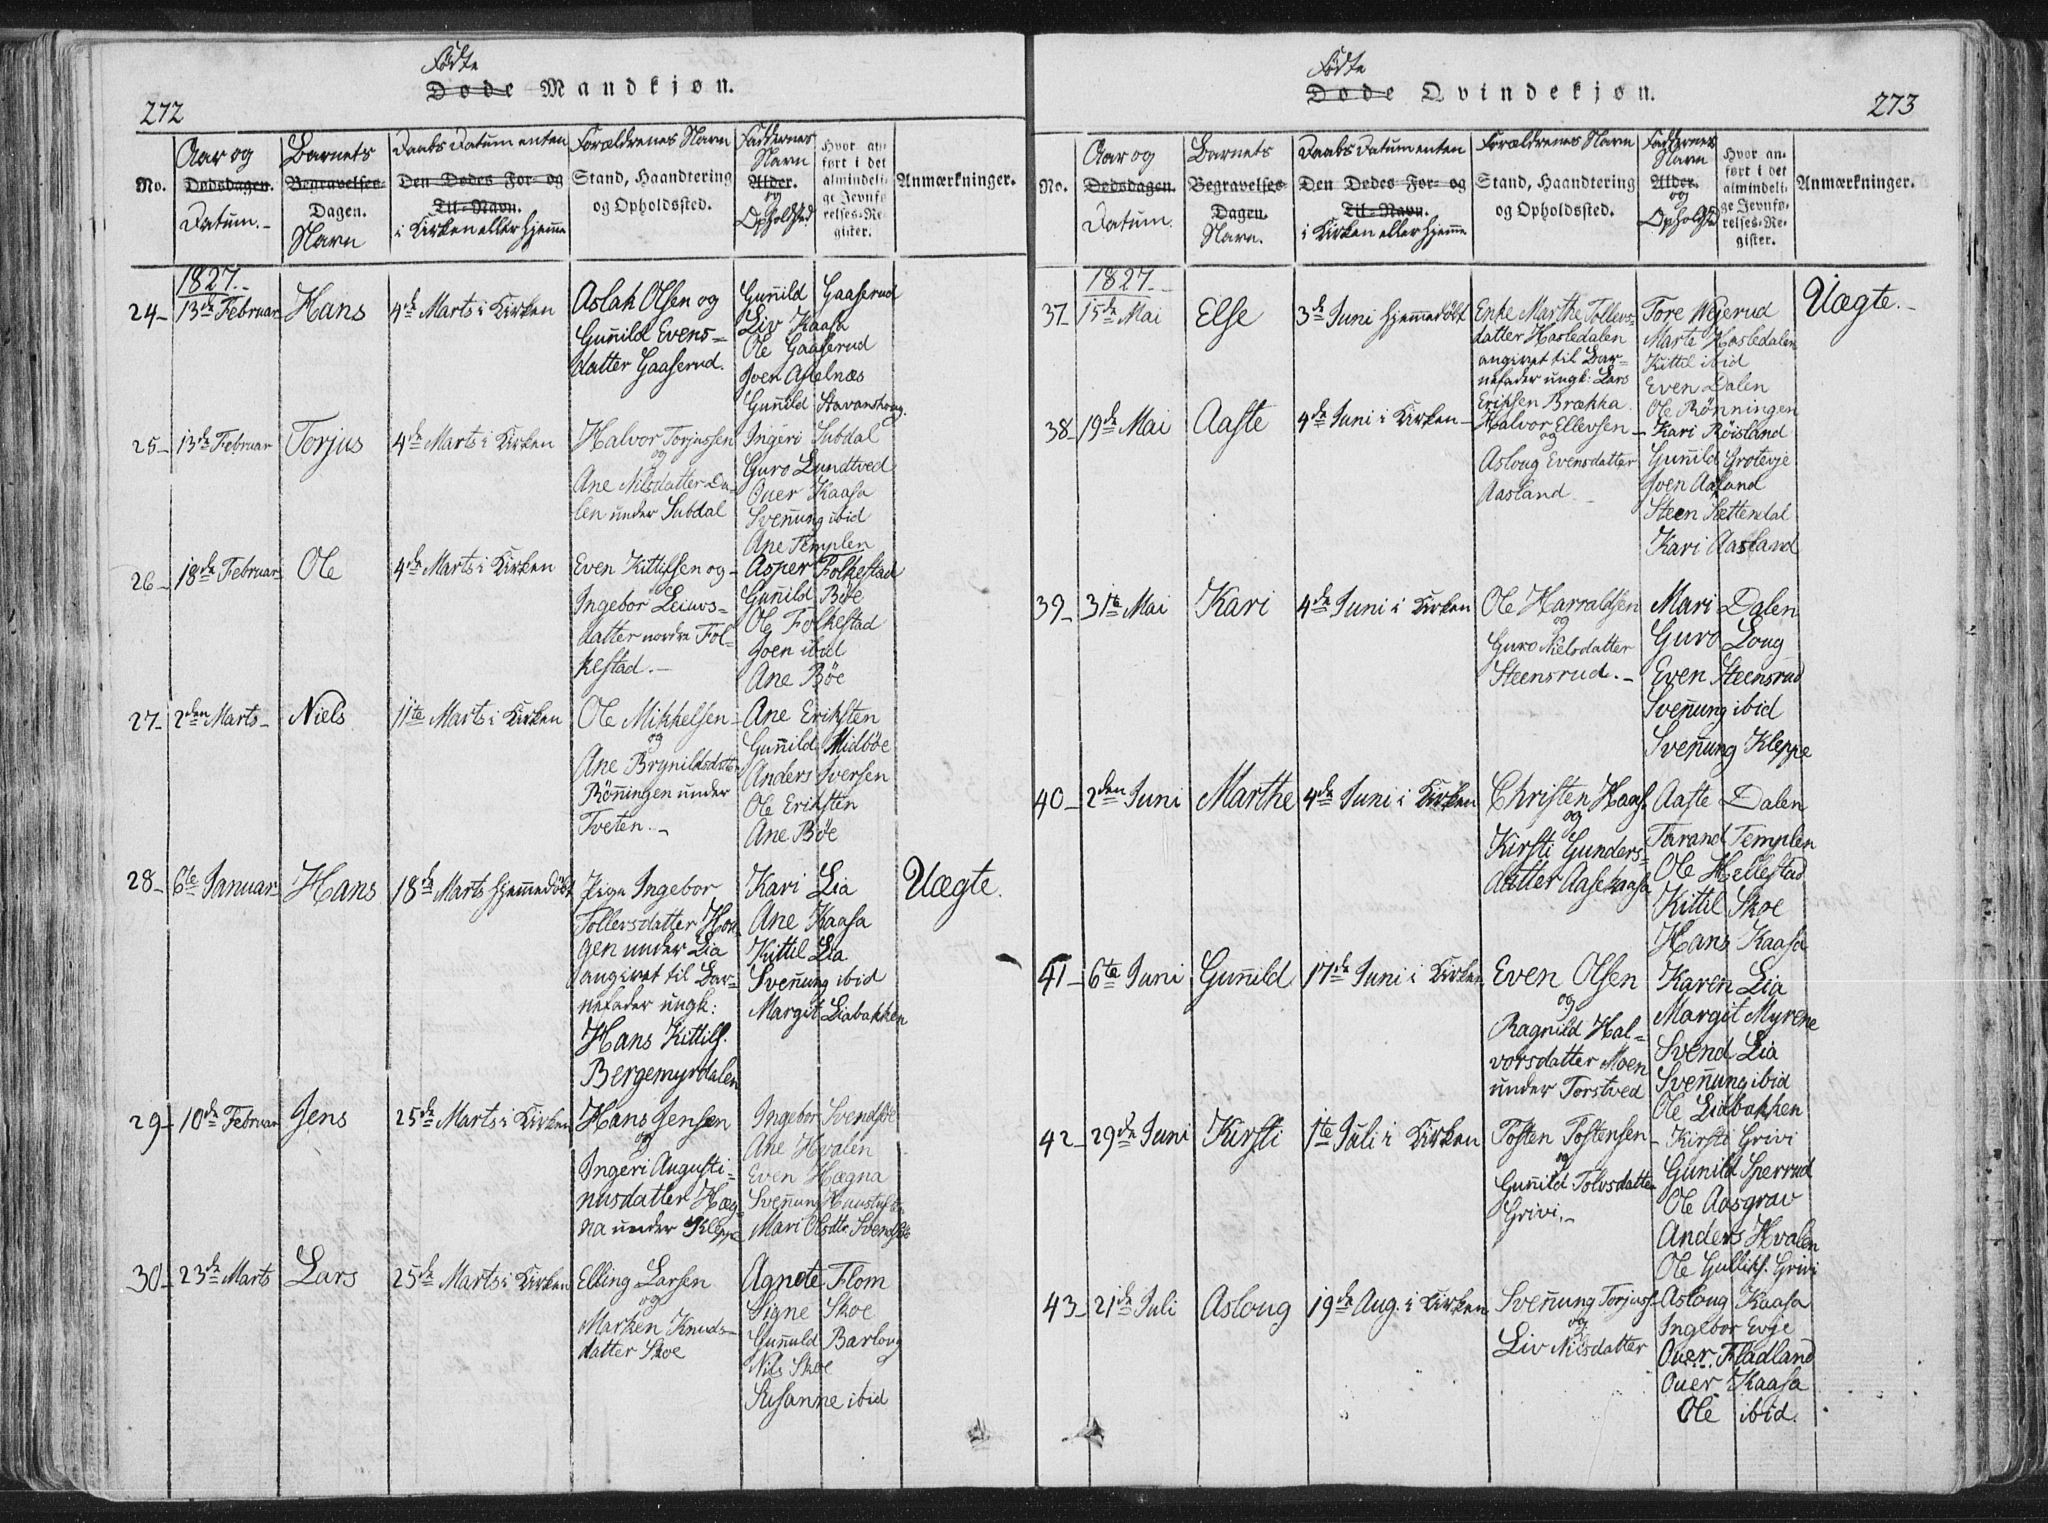 272
Fødte
Døde Mandkjøn.
No.
Aar og
Dødsdagen.
Datum.
Barnets
Begravelses-
Dagen.
Navn
Daabs Datum enten
Den Dødes For- og
Til-Navn.
i Kirken eller hjemme
Forældrenes Navn
Stand, Haandtering
og Opholdssted.
Faddernes
Navn
Alder.
og
Opholdsted
Hvor an-
ført i det
almindeli-
ge Jevnfø-
relses-Re-
gister.
Anmærkninger.
1827.
24 13de Februar Hans 4de Marts i Kirken
Aslak Olsen og
Gunild Evens-
datter Gaaserud.
Gunild Gaaserud
Liv Kaasa
Ole Gaaserud
Joen Aselnæs
Gunild Stavanshoug.
25 13de Februar Torjus 4de Marts i Kirken
Halvor Torjussen
og
Ane Nilsdatter Da-
len under Subdal
Ingeri Subdal
Guro Lundtved
Ouer Kaasa
Svenung ibid
Ane Templen
26 18de Februar Ole 4de Marts i Kirken
Even Kittilsen og
Ingebor Leiuvs-
datter nordre Fol-
kestad.
Asper Folkestad
Gunild Bøe
Ole Folkestad
Joen ibid
Ane Bøe
27 2den Marts Niels 11te Marts i Kirken
Ole Mikkelsen
og
Ane Brynildsdatter
Rønningen under
Tveten.
Ane Eriksten
Gunild Midbøe
Anders Iversen
Ole Eriksten
Ane Bøe
28 6te Januar Hans 18de Marts hjemmedøbt
Pige Ingebor
Tollersdatter Hou-
gen under Lia
angivet til Bar-
nefader ungk:
Hans Kittils.
Bergemyrdalen
Kari Lia
Ane Kaasa
Kittil Lia
Svenung ibid
Margit Liabakken
Uægte.
29 10de Februar Jens 25de Marts i Kirken
Hans Jensen
og
Ingeri Augusti-
nusdatter Hæg-
na under Kleppe
Ingebor Svendsøe
Ane Hvalen
Even Hægna
Svenung
Mari Olsdtr. Svendsøe
30 23de Marts Lars 25de Marts i Kirken
Elling Larsen
og
Marken Knuds-
datter Skoe
Agnete Flom
Signe Skoe
Gunuld Barloug
Nils Skoe
Susanne ibid
Fødte
Døde Qvindekjøn.
273
No.
Aar og
Dødsdagen.
Datum.
Barnets
Begravelses-
Dagen.
Navn.
Daabs Datum enten
Den Dødes For- og
Til-Navn.
i Kirken eller hjemme
Forældrenes Navn
Stand, Haandtering
og Opholdssted.
Faddernes
Navn
Alder.
og
Opholdsted
Hvor an-
ført i det
almindeli-
ge Jevnfø-
relses-Re-
gister.
Anmærkninger.
1827.
37 15de Mai Else 3de Juni hjemmedøbt
Enke Marthe Tollevs-
datter Hasledalen
angivet til Bar-
nefader ungk: Lars
Eriksen Brækka.
Tore Wejerud
Marte Hasledalen
Kittil ibid
Even Dalen
Ole Rønningen
Uægte.
38 19de Mai Aaste 4de Juni i Kirken
Halvor Ellevsen
og
Asloug Evensdatter
Aasland
Kari Røisland
Gunild Grotevje
Joen Aasland
Steen Sættendal
Kari Aasland
39 31te Mai Kari 4de Juni i Kirken
Ole Harraldsen
og
Guro Nielsdatter
Steensrud.
Mari Dalen
Guro Loug
Even Steensrud
Svenung ibid
Svenung Kleppe
40 2den Juni Marthe 4de Juni i Kirken
Christen Haas.
og
Kirsti Gunders-
datter Aasekaasa
Aaste Dalen
Tarand Templen
Ole Hellestad
Kittil Skoe
Hans Kaasa
41 6te Juni Gunild 17de Juni i Kirken
Even Olsen
og
Ragnild Hal-
vorsdatter Moen
under Torstved
Karen Lia
Margit Myrene
Svend Lia
Svenung ibid
Ole Liabakken
42 29de Juni Kirsti 1te Juli i Kirken
Tosten Tostensen
og
Gunild Tolvsdatter
Grivi.
Kirsti Grivi
Gunild Sperrud
Ole Aasgrav
Anders Hvalen
Ole Gulliks. Grivi
43 21de Juli Asloug 19de Aug. i Kirken
Svenung Torjuss.
og
Liv Nilsdatter
Asloug Kaasa
Ingebor Evje
Ouer Fladland
Ouer Kaasa
Ole ibid.